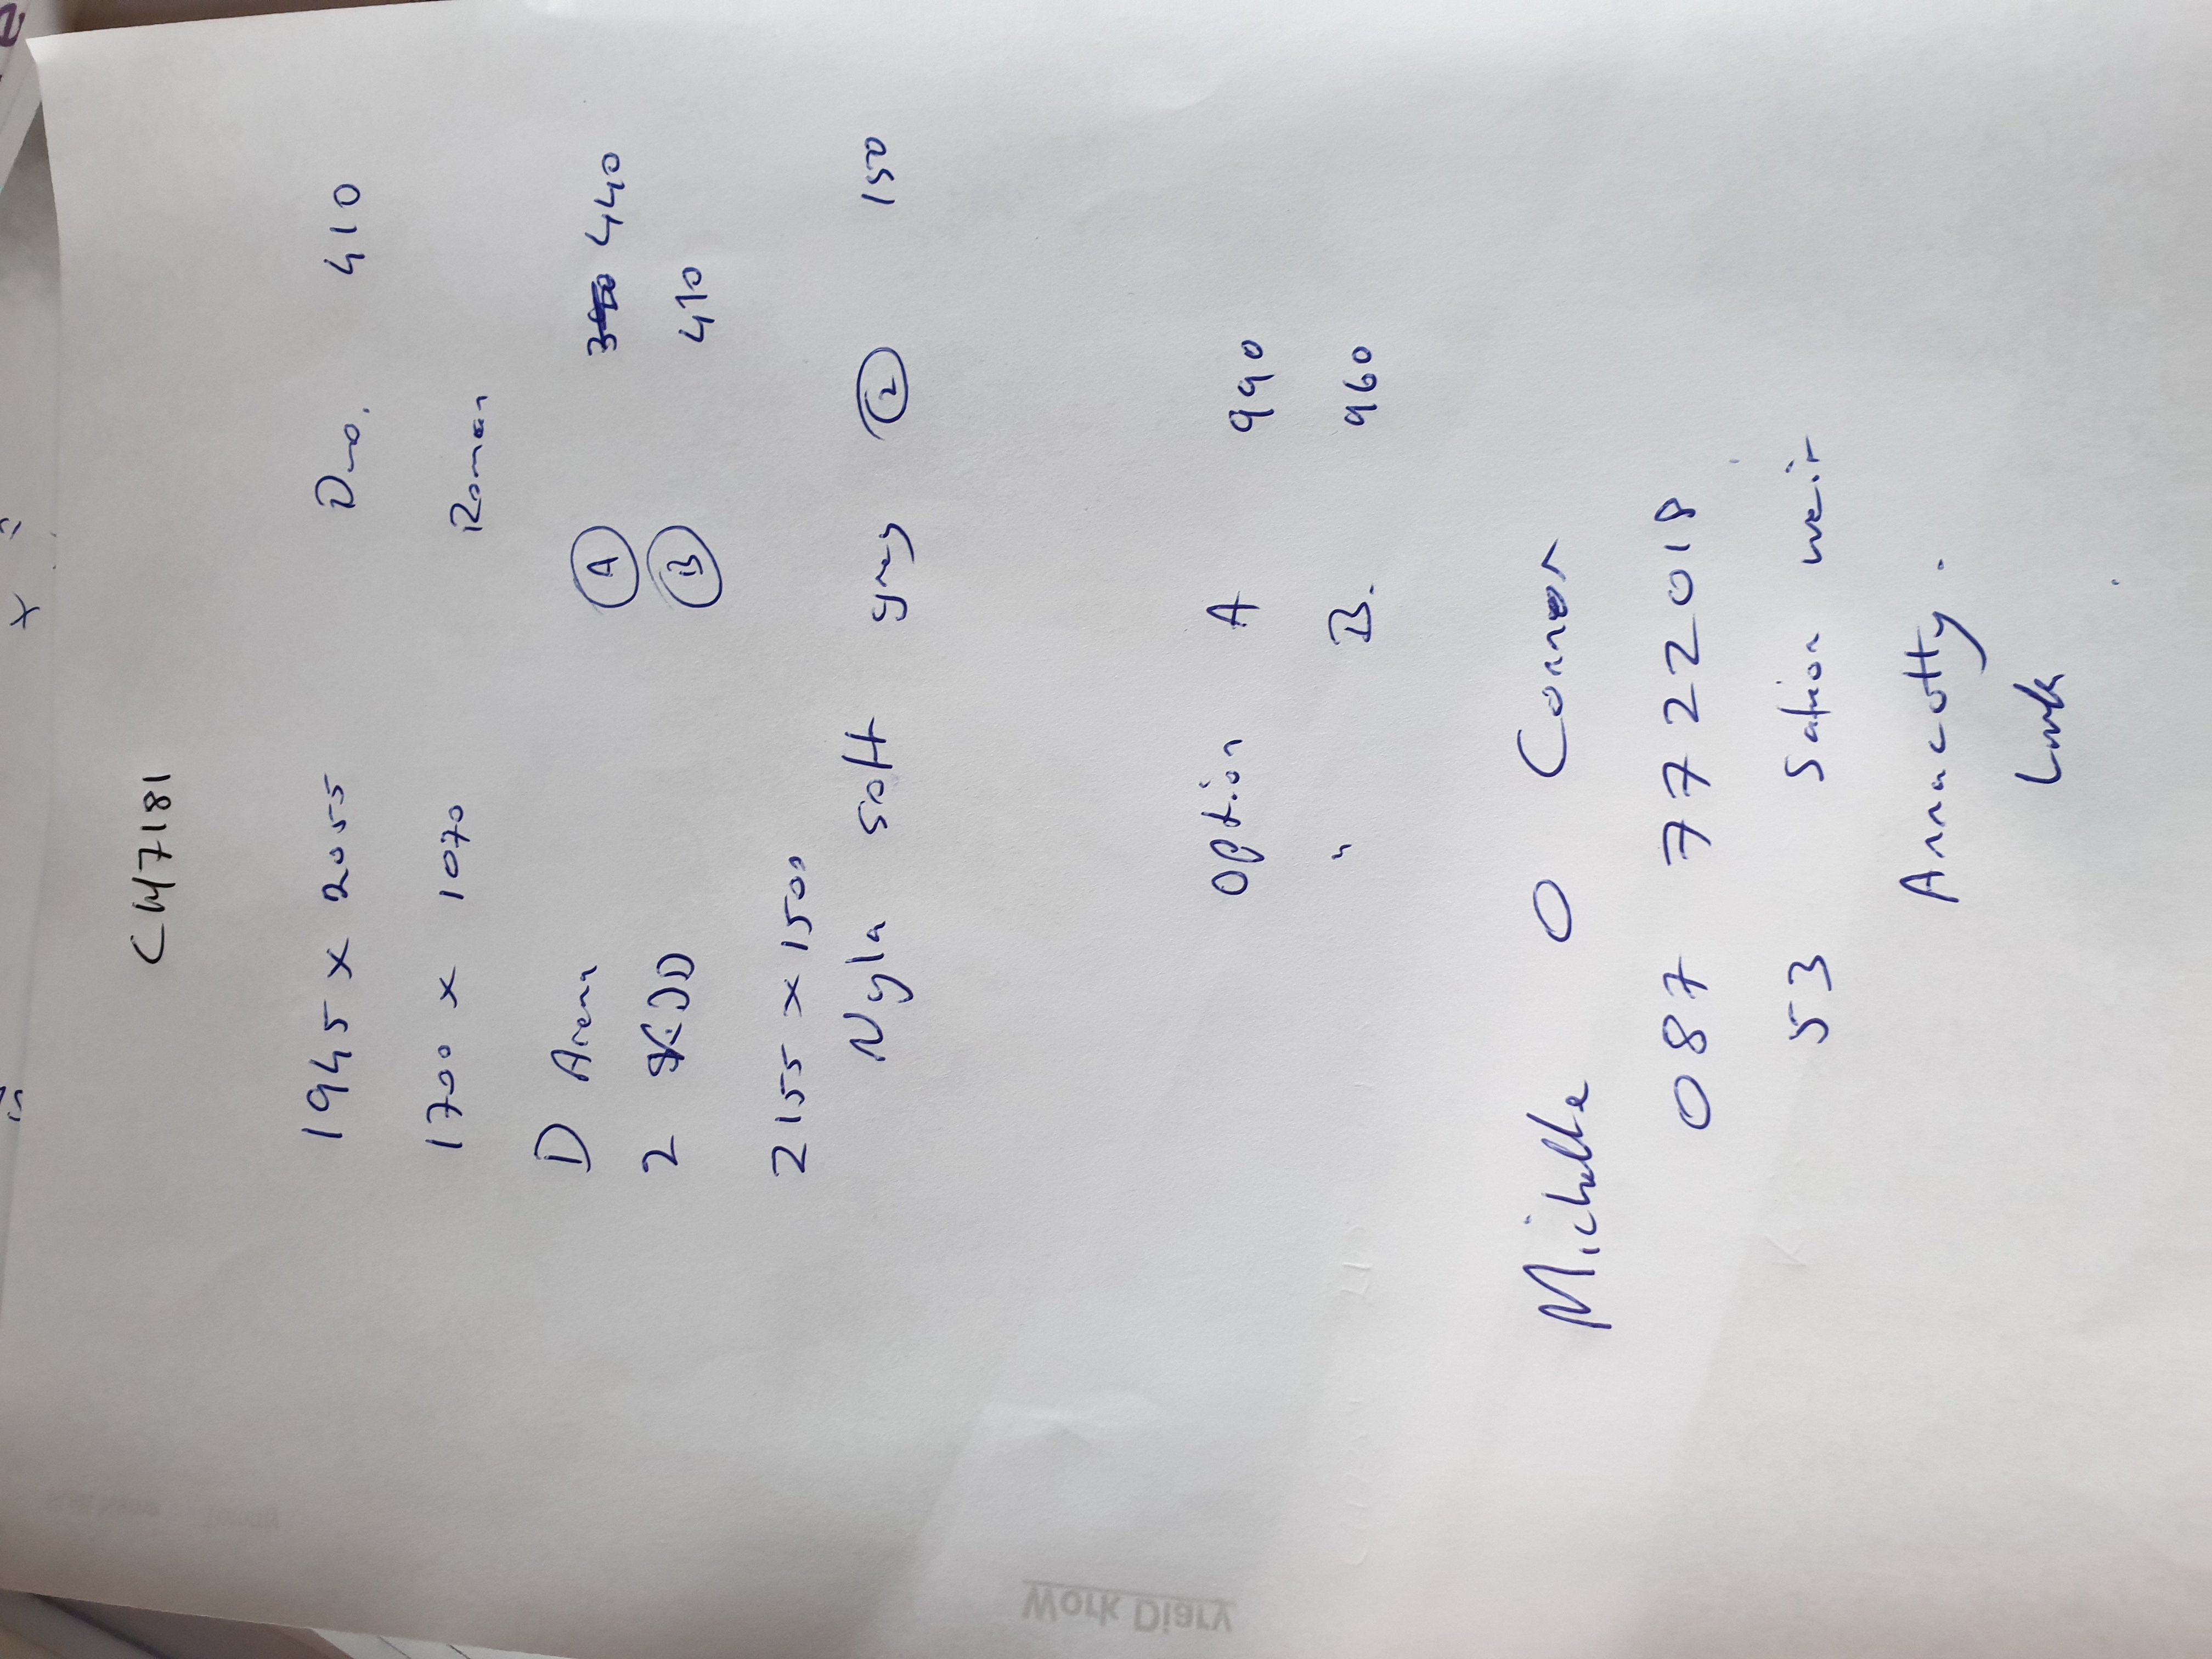 CW7181
1945 x 2055 Duo. 410
1700 x 1070 Roman
D Arena A 440
2 B 410
2155 x 1500
Nyla soft grey 2 150
Option A 990
" B. 960
Michelle O Connor
087 7722018
53 Salmon weir
Annacotty.
Work Diary